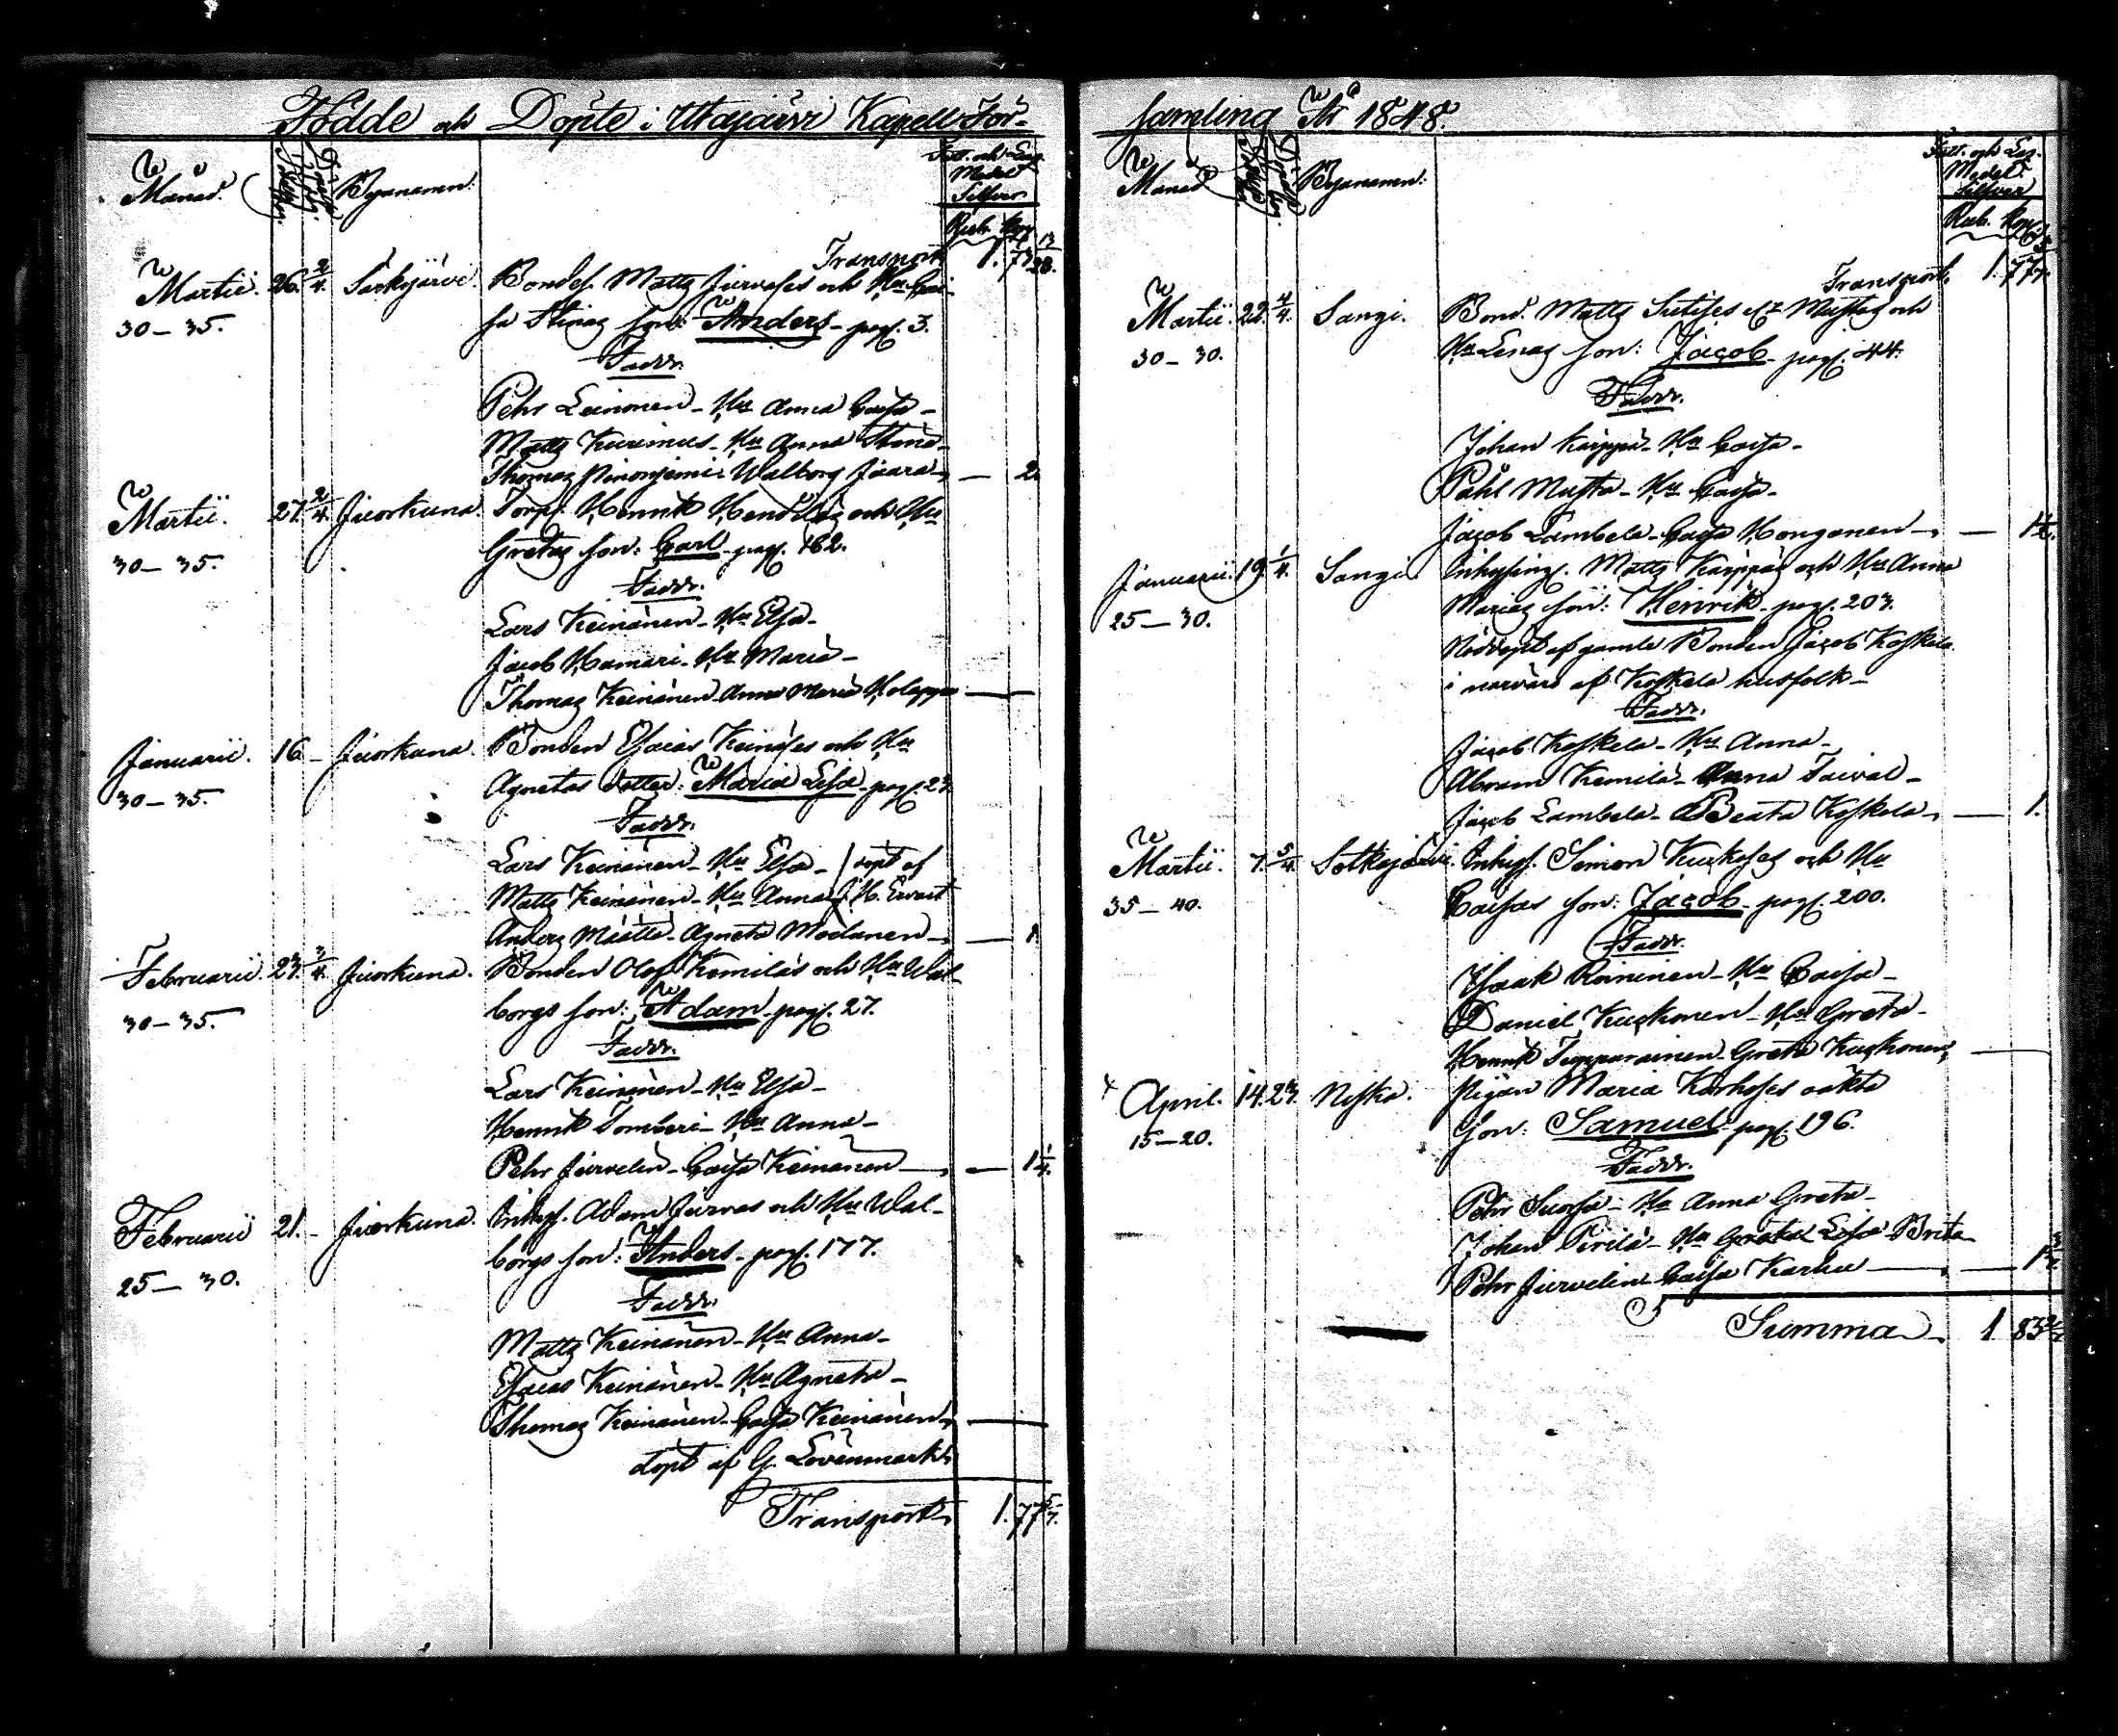 Födde och Döpte i Utajärvi Kapell För-
Månad. Byanamn:
Fatt. och
Medel
Silfver
Rub. Kop.
Transport 1. 73 13/28.
Martii. 26. 2/4. Särkijärvi. Bondes. Matts Jurvases och Hu Cai-
30 – 35. sa Stinas son: Anders pag. 3.
Fadd.
Pehr Leinonen – Hu Anna Caisa –
Matts Kurimus – Hu Anna Stina –
Thomas Niskaniemi Walborg Juara – 2.
Martii. 27. 2/4 Juorkuna. Torp. Henrik och Hu
30 – 35. Gretas son: Carl pag. 162.
Fadd.
Lars Keinänen – Hu Elsa –
Jacob Hamari – Hu Maria –
Thomas Keinänen Anna Maria Holappa
Januarii. 16 – Juorkuna. Bonden Esaias Keinäses och Hu
30 – 35. Agnetas dotter: Maria Lisa pag. 23.
Fadd.
Lars Keinänen – Hu Elsa – döpt af
Matts Keinänen – Hu Anna J. H. Ervast
Anders Määttä – Agneta Moilanen – 1.
Februarii. 23. 3/4. Juorkuna. Bonden Olof Kemiläs och Hu Wal-
30 – 35. borgs son: Adam pag. 27.
Fadd.
Lars Keinänen – Hu Elsa –
Henrik Tomberi – Hu Anna –
Pehr Jurvelin – Caisa Keinänen – 1 1/4.
Februarii 21. – Juorkuna. Inhys. Adam Jurvas och Hu Wal-
25 – 30. borgs son: Anders pag. 177.
Fadd.
Matts Keinänen – Hu Anna –
Esaias Keinänen – Hu Agneta –
Thomas Keinänen – Caisa Keinänen
döpt af G. Lövenmark.
Transport 1. 77 5/7.
samling År 1848.
Månad Byanamn:
Fatt. och
Medel
Silfver
Rub. Kop.
Transport. 1. 77 5/7.
Martii. 22. 4/4. Sangi. Bond. Matts och
30 – 30. Hu Lenas son: Jacob pag. 44.
Fadd.
Johan Karppa – Hu Caisa –
Påhl Musta – Hu Caisa –
Jacob Lambela – Caisa Honganen – 1 1/2.
Januarii. 19. 1/4. Sangi. Inhysing. Matts Karppas och Hu Anna
25 – 30. Marias son: Henrik pag. 203.
Nöddöpt af gamla Bonden Jacob Koskela
i närvaro af Koskela husfolk –
Fadd.
Jacob Koskela – Hu Anna –
Abram Kemilä – Anna Taival –
Jacob Lambela – Beata Koskela – 1.
Martii. 7. 5/4. Sotkajärvi. Inhys. Simon Kuskoses och Hu
35 – 40. Caisas son: Jacob pag. 200.
Fadd.
Isaak Roininen – Hu Caisa –
Daniel Kuskonen – Hu Greta –
Henrik Tupparainen – Greta Kuskonen
April. 14. 23. Niska. Pigan Maria Karhoses oäkta
15 – 20. son: Samuel pag. 196.
Fadd.
Pehr Suorsa – Hu Anna Greta –
Johan Pirilä – Hu Greta Lisa Brita
Pehr Jurvelin – Caisa Karhu – 1
Summa 1 83